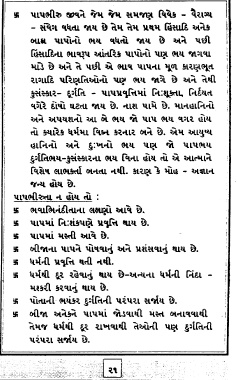 卐 પાપભીરુ જીવને જેમ જેમ સમજણ વિવેક - વૈરાગ્ય
- સંવેગ વધતા જાય છે તેમ તેમ પ્રથમ હિંસાદિ અનેક
બાહ્ય પાપોનો ભય વધતો જાય છે અને પછી
હિંસાદિના ભાવરૂપ આંતરિક પાપોનો પણ ભય જાગવા
માંડે છે અને તે પછી એ ભાવ પાપના મૂળ કારણભૂત
રાગાદિ પરિણતિઓનો પણ ભય જાગે છે અને તેથી
કુસંસ્કાર- દુર્ગતિ - પાપપ્રવૃત્તિમાં નિઃશૂકતા, નિર્દયતા
વગેરે દોષો ઘટતા જાય છે. નાશ પામે છે. માનહાનિનો
અને અપયશનો આ બે ભય જો પાપ ભય વગર હોય
તો ક્યારેક ધર્મમાં વિઘ્ન કરનાર બને છે. એમ આયુષ્ય
હાનિનો અને દુઃખનો ભય પણ જો પાપભય
દુર્ગતિભય-કુસંસ્કારના ભય વિના હોય તો એ આત્માને
વિશેષ લાભકર્તા બનતા નથી. કારણ કે મોહ - અજ્ઞાન
જન્ય હોય છે.
પાપભીરુતા ન હોય તો :
卐 ભવાભિનંદીતાના લક્ષણો આવે છે.
卐 પાપમાં નિઃશંકપણે પ્રવૃત્તિ થાય છે.
卐 પાપમાં મસ્તી આવે છે.
卐 બીજાના પાપને પોષવાનું અને પ્રશંસવાનું થાય છે.
卐 ધર્મની પ્રવૃત્તિ થતી નથી.
卐 ધર્મથી દૂર રહેવાનું થાય છે-અન્યના ધર્મની નિંદા -
મશ્કરી કરવાનું થાય છે.
卐 પોતાની ભયંકર દુર્ગતિની પરંપરા સર્જાય છે.
卐 બીજા અનેકને પાપમાં જોડવાથી મસ્ત બનાવવાથી
તેમજ ધર્મથી દૂર રાખવાથી તેઓની પણ દુર્ગતિની
પરંપરા સર્જાય છે.
૨૧